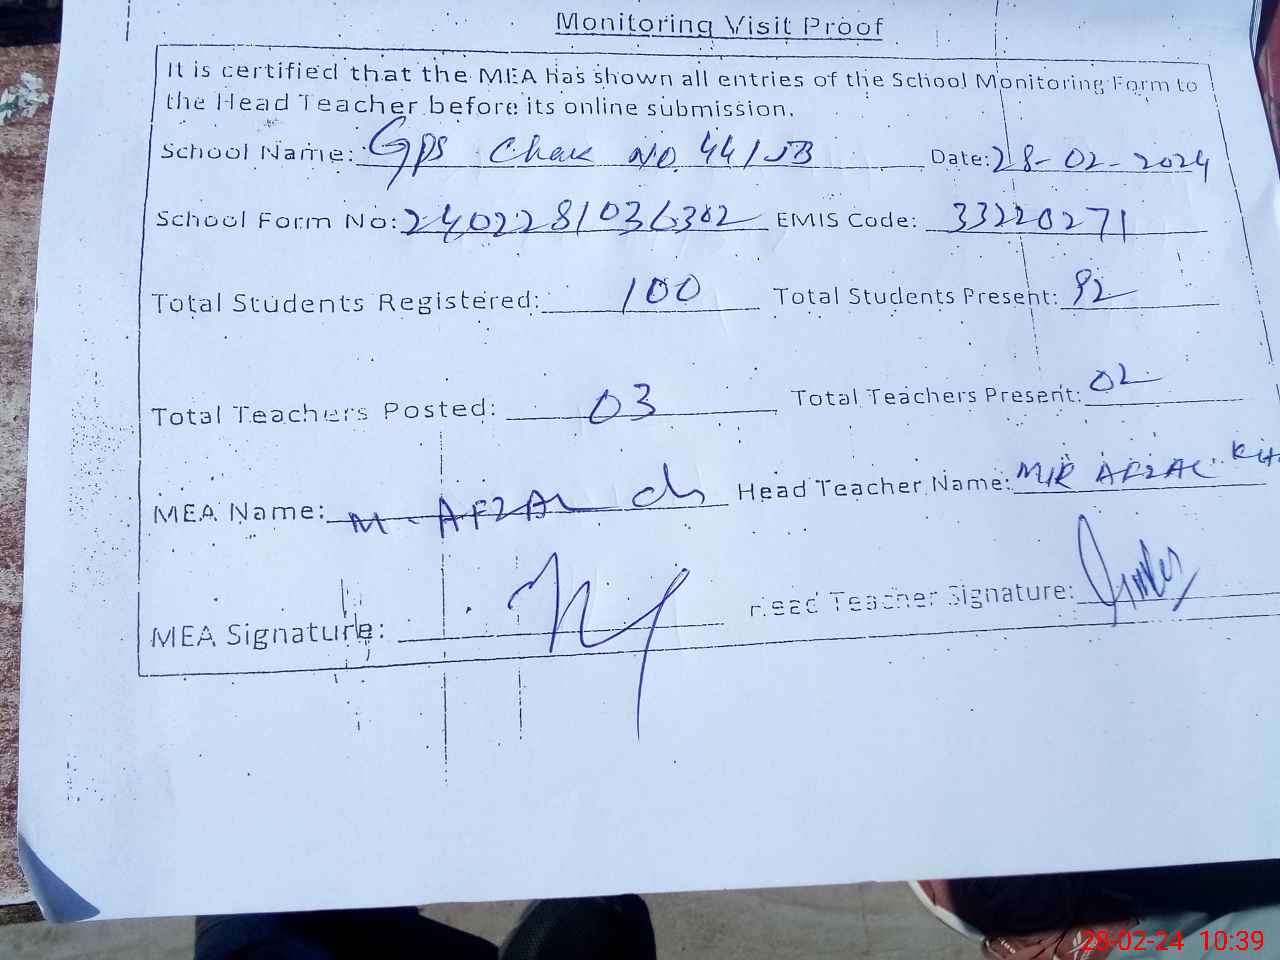 Monitoring Visit Proof
It is certified that the MEA has shown all entries of the School Monitoring Form to
the Head Teacher before its online submission.
School Name: GPS Chak No. 441/JB Date: 28-02-2024
School Form No: 2402281036302 EMIS Code: 33220271
Total Students Registered: 100 Total Students Present: 92
Total Teachers Posted: 03 Total Teachers Present: 02
MEA Name: M. AFZAL Ch Head Teacher Name: MIR AFZAL
MEA Signature: Head Teacher Signature:
28-02-24 10:39